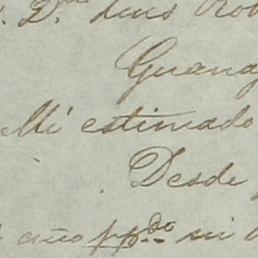 Dn. Luis Rob
Guana
Mi estimado
Desde
año ppdo mi